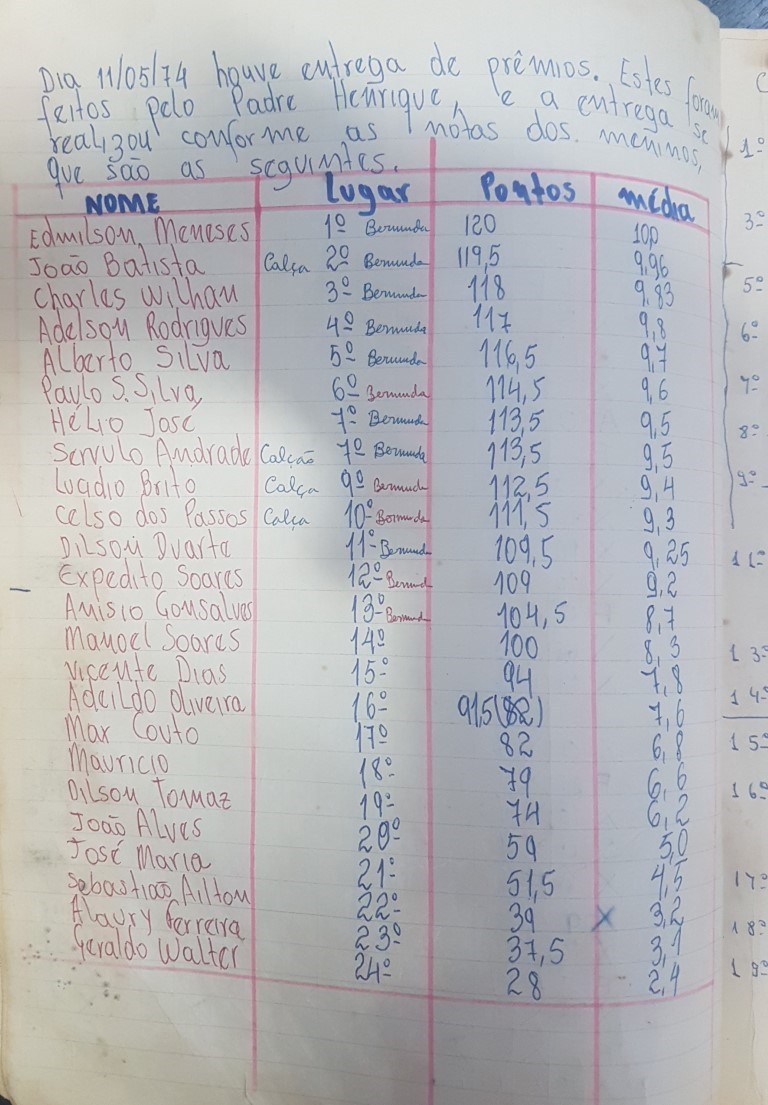 Dia 11/05/74 houve entrega de prêmios. Estes foram
feitos pelo Padre Henrique, e a entrega se
realizou conforme as nótas dos meninos,
que são as seguintes.
NOME Lugar Pontos média
Edmilson Meneses 1º Bermuda 120 100
João Batista Calça 2º Bermuda 119,5 9,96
Charles Wilham 3º Bermuda 118 9,83
Adelson Rodrigues 4º Bermuda 117 9,8
Alberto Silva 5º Bermuda 116,5 9,7
Paulo S. Silva 6º Bermuda 114,5 9,6
Hélio José 7º Bermuda 113,5 9,5
Servulo Andrade Calção 7º Bermuda 113,5 9,5
Lucidio Brito Calça 9º Bermuda 112,5 9,4
Celso dos Passos Calça 10º Bermuda 111,5 9,3
Dilson Duarte 11º Bermud 109,5 9,25
Expedito Soares 12º Bermud 109 9,2
Anisio Gonsalves 13º Bermud 104,5 8,7
Manoel Soares 14º 100 8,3
Vicente Dias 15º 94 7,8
Adeildo Oliveira 16º 91,5(82) 7,6
Max Couto 17º 82 6,8
Mauricio 18º 79 6,6
Dilson Tomaz 19º 74 6,2
João Alves 20º 59 5,0
José Maria 21º 51,5 4,5
Sebastião Ailton 22º 39 x 3,2
Alaury Ferreira 23º 37,5 3,1
Geraldo Walter 24º 28 2,4
1º
3º
5º
6º
7º
8º
9º
11º
13º
14º
15º
16º
17º
18º
19º